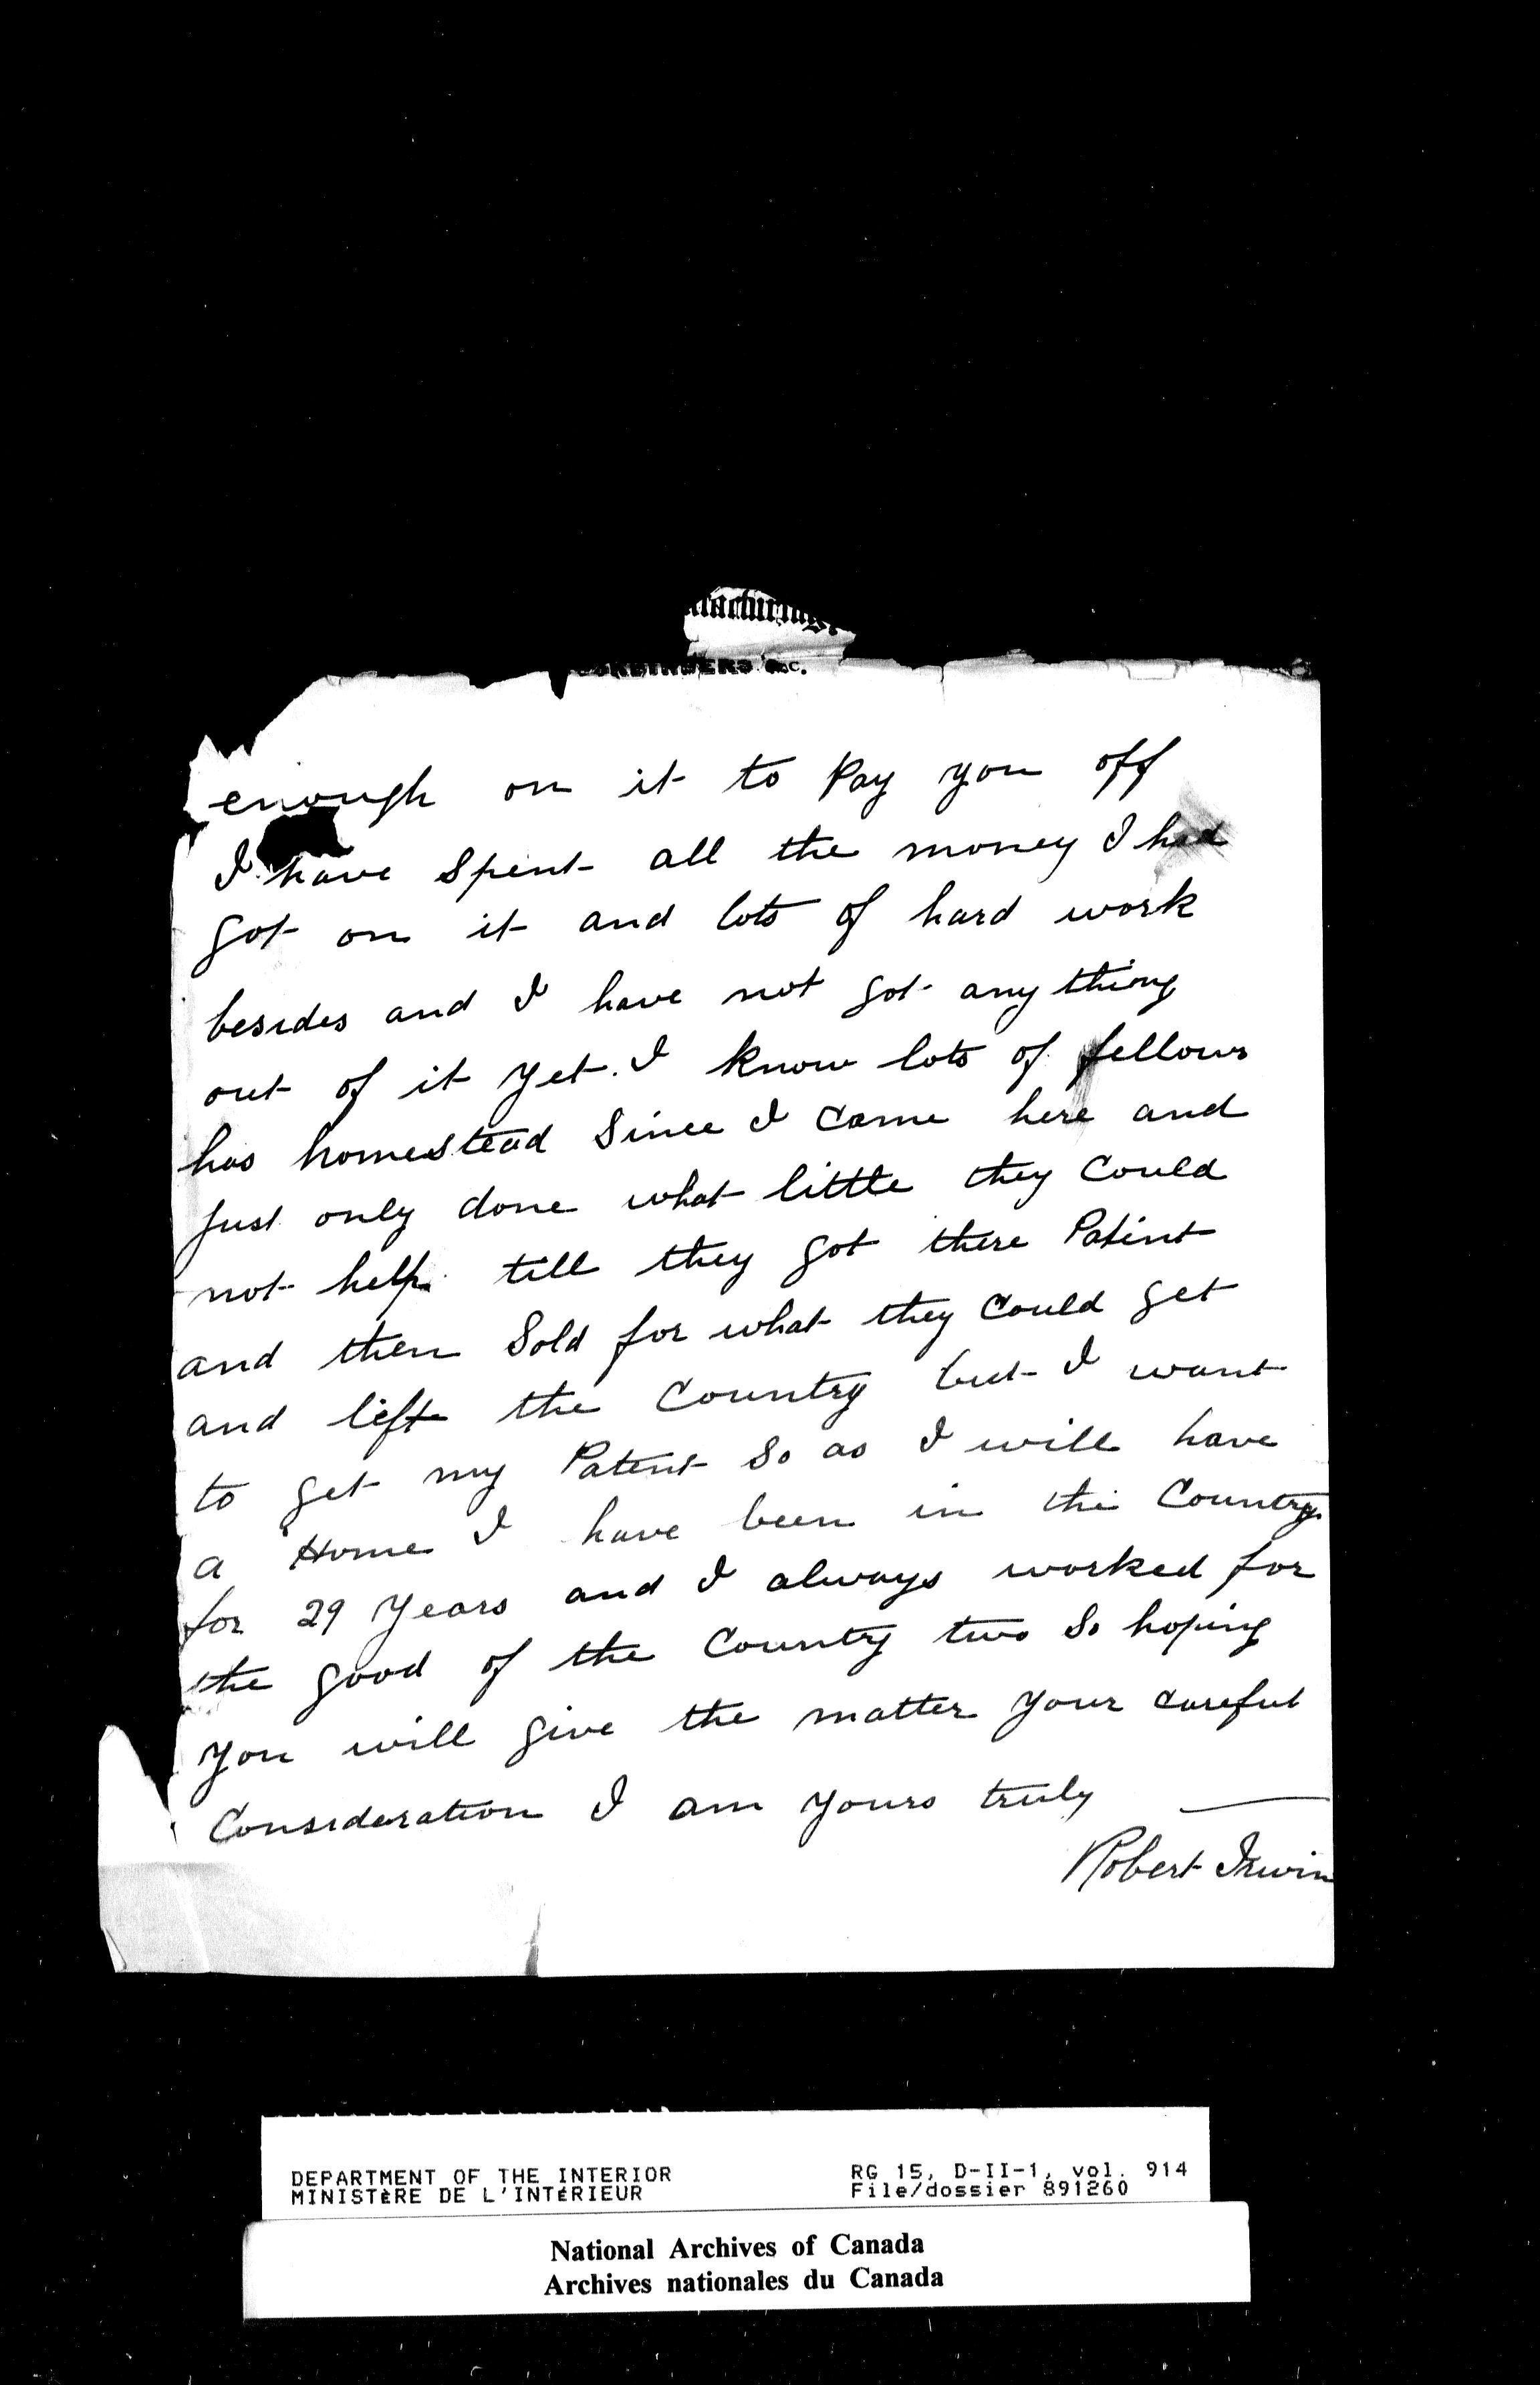 enough on it to Pay you off
I have Spent all the money I had
got on it and lots of hard work
besides and I have not got any thing
out of it yet. I know lots of fellows
has homestead Since I Came here and
Just only done what little they Could
not help till they got there Patint
and then Sold for what they Could get
and left the Country but I want
to get my Patent So as I will have
a Home I have been in the Country
for 29 years and I always worked for
the good of the Country two So hoping
you will give the matter your careful
Consideration I am yours truly
Robert Irwin
DEPARTMENT OF THE INTERIOR
MINISTÈRE DE L'INTÉRIEUR
RG 15, D-II-1, vol. 914
File/dossier 891260
National Archives of Canada
Archives nationales du Canada